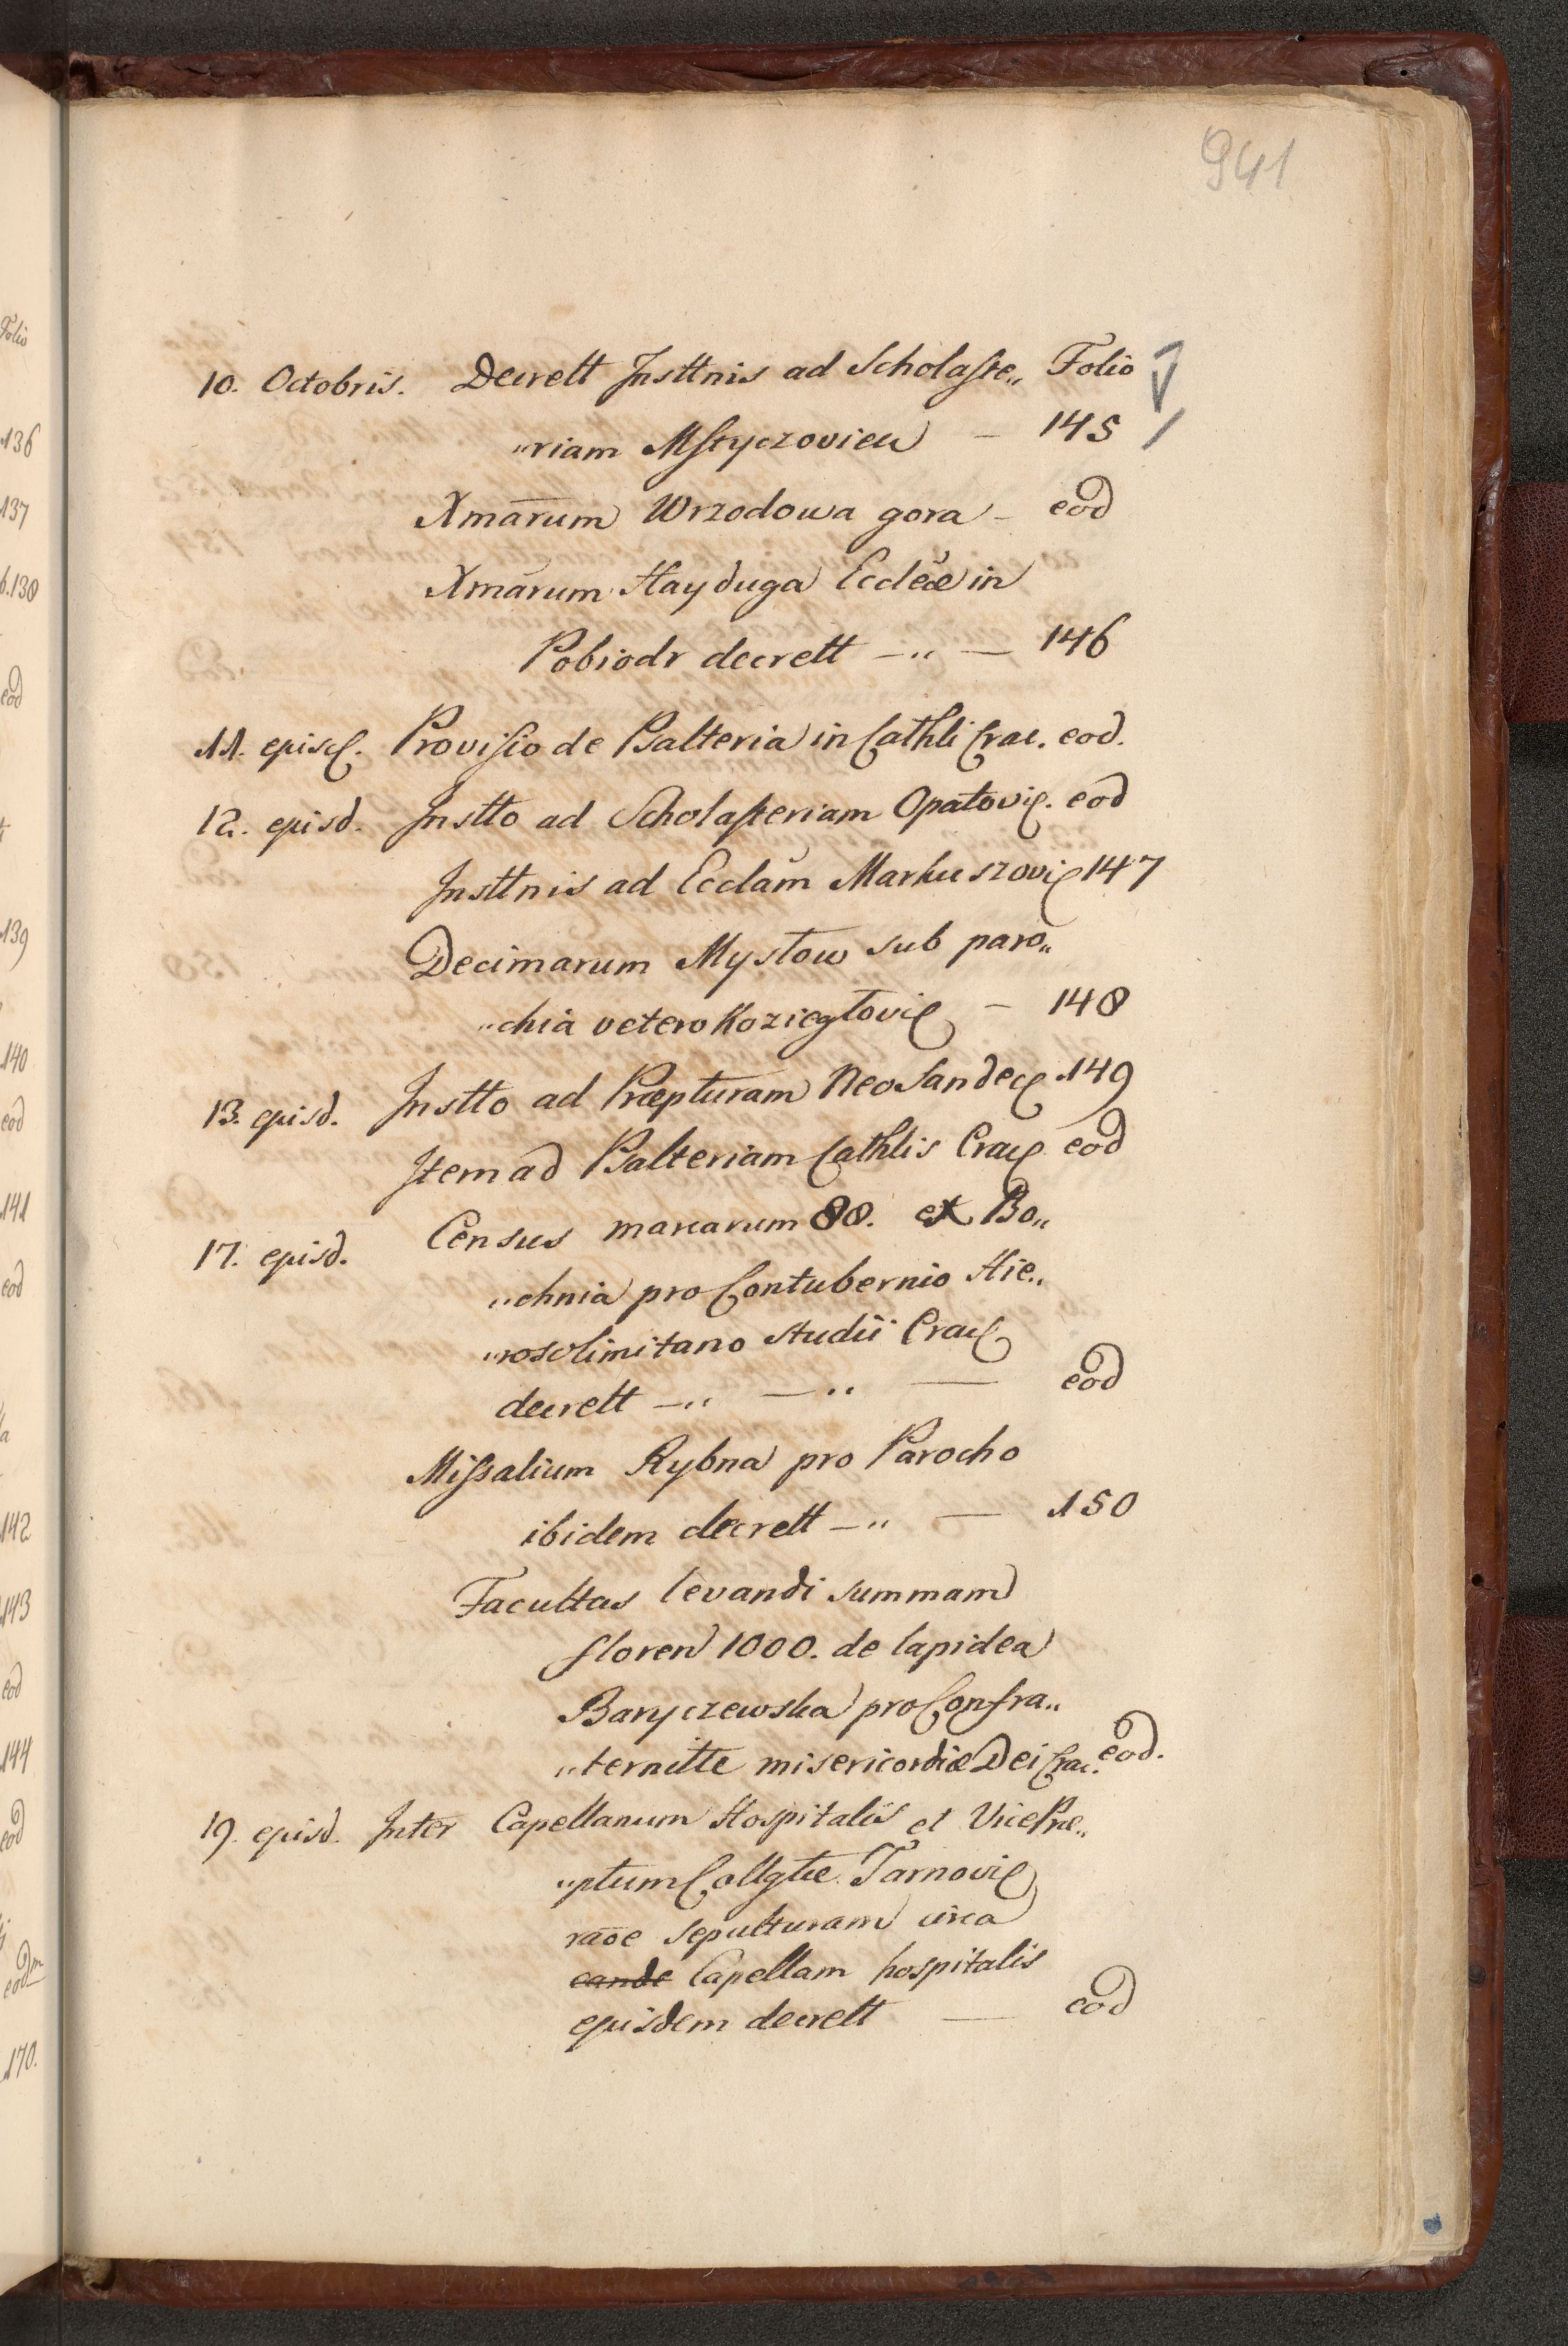 941
10. Octobris. Decrett Insttnis ad Scholaste„ Folio
„riam Mstyczovien – 145
Xmārum Wrzodowa gora – eod
Xmārum Hayduga Ecclēæ in
Pobiedr decrett –„ — 146
11. ejusd. Provisio de Psalteria in Cathli Crac. eod.
12. ejusd. Instto ad Scholasteriam Opatovię. eod
Insttnis ad Ecclam̄ Markuszovię 147
Decimarum Mystow sub paro„
„chia vetero Koziegłovię – 148
13. ejusd. Instto ad Præpturam Neo Sandecę 149
Item ad Psalteriam Cathlis Cracę eod
17. ejusd. Census marcarum 80. ex Bo„
„chnia pro Contubernio Hie„
„rosolimitano Studii Cracę
decrett –„ —„ — eod
Missalium Rybna pro Parocho
ibidem decrett –„ — 150
Facultas levandi summam
floren 1000. de lapidea
Baryczewska pro Confra„
„ternitte misericordiæ Dei Crac. eod.
19. ejusd. Inter Capellanum Hospitalis et VicePræ„
„ptum Collgtæ Tarnovię
raōe sepulturam circa
eande Capellam hospitalis
ejusdem decrett — eod
Folio
136
137
b.138
eod
139
140
eod
141
eod
142
143
eod
144
eod
eodm
170.